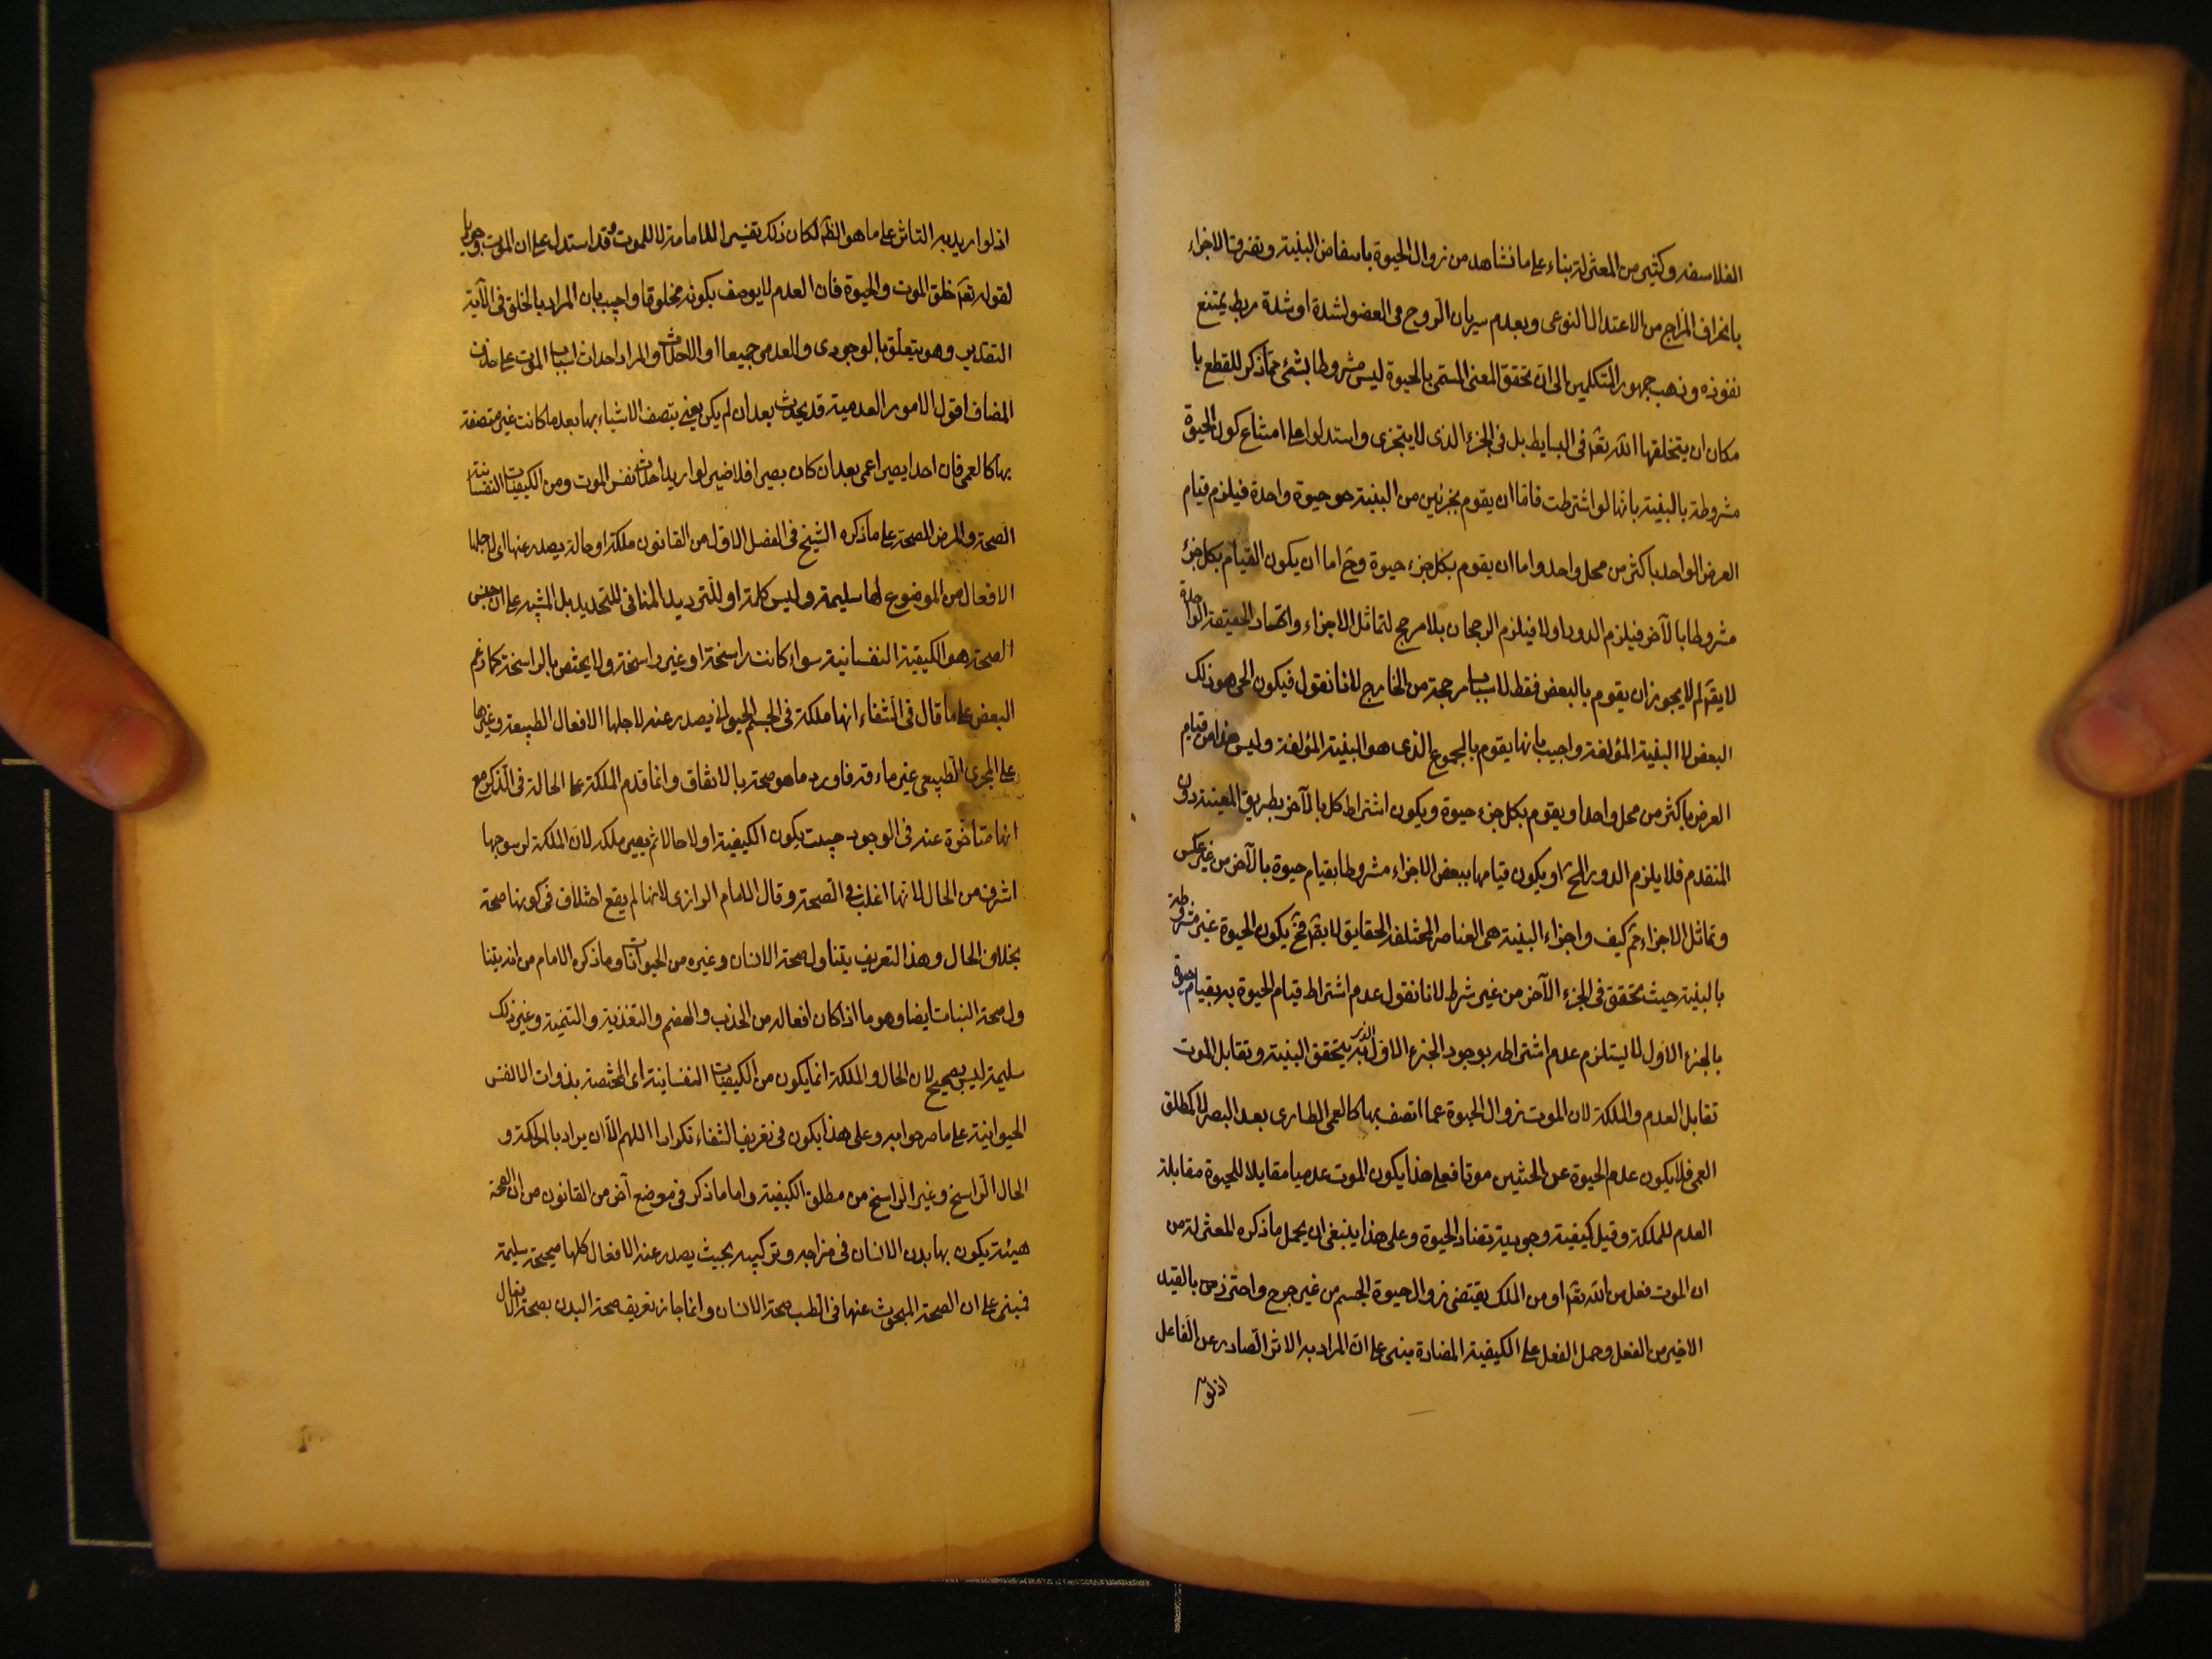 الفلاسفه وكثير من المعتزلة بناء على ما نشاهد من زوال الحيوة بانتقاض البنية وتفرق الاجزاء
بانحراف المزاج من الاعتدال النوعى وبعدم سريان الروح فى العضو لشدة او شدة ربط يمتنع
نفوذه وذهب جمهور المتكلمين الى ان تحقق المعنى المسمى بالحيوة ليس مشروطا بشئ مما ذكر للقطع با
مكان ان يتخلقها الله تعا فى البسايط بل فى الجزء الذى لا يتجزى واستدلوا على امتناع كون الحيوة
مشروطة بالبنية بانها لو اشترطت فاما ان يقوم بجزئين من البنية حيوة واحدة فيلزم قيام
العرض الواحد باكثر من محل واحد واما ان يقوم بكل جزء حيوة وح اما ان يكون القيام بكل جزء
مشروطا بالآخر فيلزم الدور او لا فيلزم الرجحان بلا مرجح لتماثل الاجزاء واتحاد الحقيقة الواحدة
لا يقم لم لا يجوز ان يقوم بالبعض فقط لاسباب مرجحة من الخارج لانا نقول فيكون الحى هو ذلك
البعض لا البنية المؤلفة واجيب بانها يقوم بالمجموع الذى هو البنية المؤلفة وليس هذا من قيام
العرض باكثر من محل واحد او يقوم بكل جزء حيوة ويكون اشتراط كل بالآخر بطريق المعية دون
المتقدم فلا يلزم الدور المح او يكون قيامها ببعض الاجزاء مشروطا بقيام حيوة بالآخر من غير عكس
وتماثل الاجزاء ثم كيف واجزاء البنية هى العناصر المختلفة الحقايق لا يقم فح يكون الحيوة غير مشروطة
بالبنية حيث تحقق فى الجزء الآخر من غير شرط لانا نقول عدم اشتراط قيام الحيوة به بقيام حيوة
بالجزء الاول لا يستلزم عدم اشتراطه بوجود الجزء الاول الذى به يتحقق البنية وتقابل الموت
تقابل العدم والملكة لان الموت زوال الحيوة عما اتصف بها كالعمى الطارى بعد البصر لا كمطلق
العمى فلا يكون عدم الحيوة عن الجنين موتا فعلى هذا يكون الموت عدميا مقابلا للحيوة مقابلة
العدم للملكة وقيل كيفية وجودية تضاد الحيوة وعلى هذا ينبغى ان يحمل ما ذكره المعتزلة من
ان الموت فعل من الله تعا او من الملك يقتضى زوال حيوة الجسم من غير جرح واحترز من بالقيد
الاخير من القتل وحمل الفعل على الكيفية المضادة مبنى على ان المراد به الاثر الصادر عن الفاعل
اذ لو
اذ لو اريد به التاثير على ما هو الظ لكان ذلك تفسيرا للاماتة لا للموت وقد استدل على ان الموت وجودى
لقوله تعا خلق الموت والحيوة فان العدم لا يوصف بكونه مخلوقا واجيب بان المراد بالخلق فى الآية
التقدير وهو يتعلق بالوجودى والعدمى جميعا او الاحداث والمراد احداث اسباب الموت على حذف
المضاف اقول الامور العدمية قد يحدث بعد ان لم يكن يعنى يتصف الاشياء بها بعد ما كانت غير متصفة
بها كالعمى فان احدا يصير اعمى بعد ان كان بصيرا فلا ضير لو اريد احداث نفس الموت ومن الكيفيات النفسانية
الصحة والمرض الصحة على ما ذكره الشيخ فى الفصل الاول من القانون ملكة او حالة يصدر عنها اى لاجلها
الافعال من الموضوع لها سليمة وليس كلمة او للترديد المنافى للتحديد بل للتنبيه على ان جنس
الصحة هو الكيفية النفسانية سواء كانت راسخة او غير راسخة ولا يختص بالراسخة كما زعم
البعض على ما قال فى الشفاء انها ملكة فى الجسم الحيوانى يصدر عنه لاجلها الافعال الطبيعة وغيرها
على المجرى الطبيعى غير ماءوفة فاورد ما هو صحة بالاتفاق وانما قدم الملكة على الحالة فى الذكر مع
انها متاخرة عنه فى الوجود حيث يكون الكيفية اولا حالا ثم يصير ملكه لان الملكة لرسوخها
اشرف من الحال لانها اغلب فى الصحة وقال الامام الرازى لانها لم يقع اختلاف فى كونها صحة
بخلاف الحال وهذا التعريف يتناول صحة الانسان وغيره من الحيوانات وما ذكره الامام من انه يتنا
ول صحة النبات ايضا وهو ما اذا كان افعاله من الجذب والهضم والتغذية والتنمية وغير ذلك
سليمة ليس بصحيح لان الحال والملكة انما يكون من الكيفيات النفسانية اى المختصة بذوات الانفس
الحيوانية على ما صرحوا به وعلى هذا يكون فى تعريف الشفاء تكرارا اللهم الا ان يراد بالملكة و
الحال الراسخ وغير الراسخ من مطلق الكيفية واما ما ذكر فى موضع آخر من القانون من ان الصحة
هيئة يكون بها بدن الانسان فى مزاجه وتركيبه بحيث يصدر عنه الافعال كلها صحيحة سليمة
فمبنى على ان الصحة المبحوث عنها فى الطب صحة الانسان وانما جاز تعريف صحة البدن بصحة الافعال